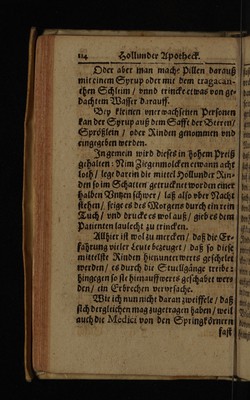 114 Hollunder Apotheck.
Oder aber man mache Pillen darauß
mit einem Syrup oder mit dem tragacan-
then Schleim / vnnd trincke etwas von ge-
dachtem Wasser darauff.
Bey kleinen vnerwachsenen Personen
kan der Syrup auß dem Safft der Beeren/
Sprößlein / oder Rinden genommen vnd
eingegeben werden.
In gemein wird dieses in hohem Preiß
gehalten: Nim Ziegenmolcken etwann acht
loth / lege darein die mittel Hollunder Rin-
den so im Schatten getrucknet worden einer
halben Vntzen schwer / laß also vber Nacht
stehen / seige es des Morgens durch ein rein
Tuch / vnd drucke es wol auß / gieb es dem
Patienten laulecht zu trincken.
Allhier ist wol zu mercken / daß die Er-
fahrung vieler Leute bezeuget / daß so diese
mittelste Rinden hienunterwerts geschelet
werden / es durch die Stuelgänge treibe:
hingegen so sie hienauffwerts geschabet wer-
den / ein Erbrechen vervrsache.
Wie ich nun nicht daran zweiffele / daß
sich dergleichen mag zugetragen haben / weil
auch die Medici von den Springkörnern
fast